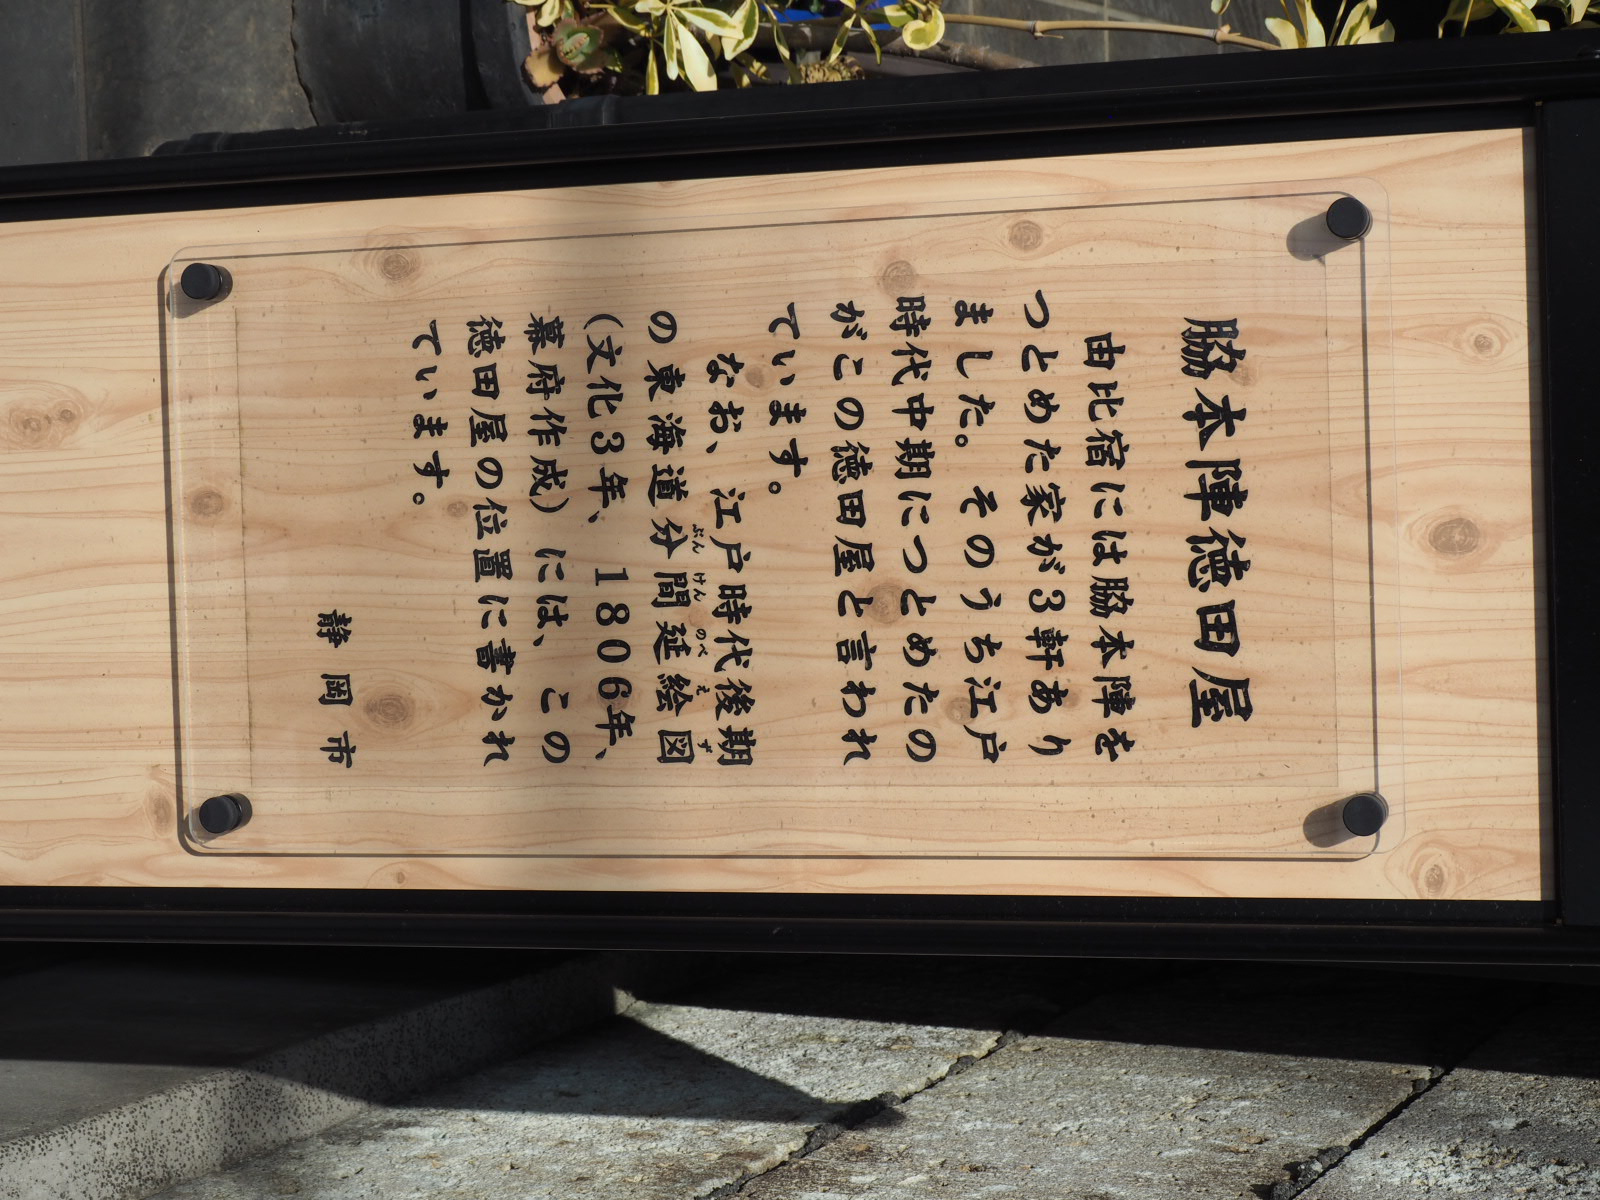 脇本陣徳田屋
由比宿には脇本陣を
つとめた家が3軒あり
ました。そのうち江戸
時代中期につとめたの
がこの徳田屋と言われ
ています。
なお、江戸時代後期
の東海道分間延絵図
ぶんけんのべえず
(文化3年、1806年、
幕府作成)には、この
徳田屋の位置に書かれ
ています。
静岡市